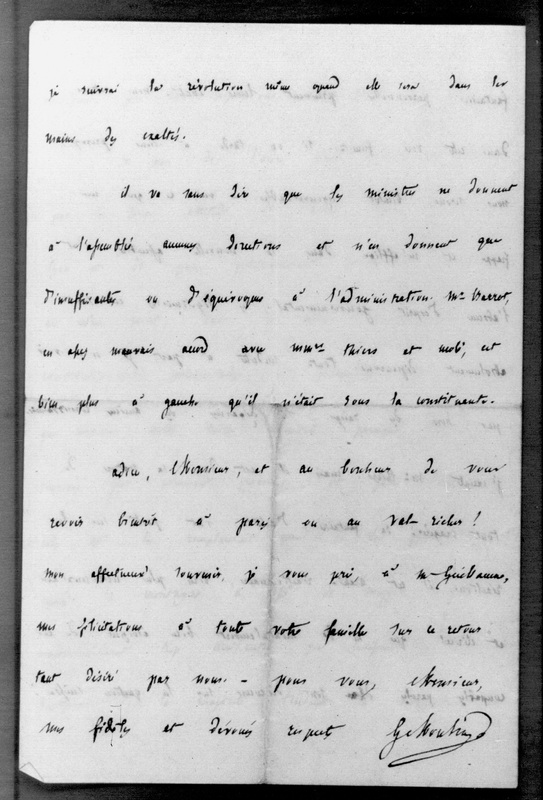 je suivrai la révolution même quand elle sera dans les
mains des exaltés.
il va sans dire que les ministres ne donnent
à l'assemblée aucunes directions et n'en donnent que
d'insuffisantes ou d'équivoques à l'administration. Mr Barrot,
en assez mauvais accord avec mmrs thiers et molé, est
bien plus à gauche qu'il n'était sous la constituante.
adieu, Monsieur, et au bonheur de vous
revoir bientôt à paris ou au val-richer!
mon affectueux souvenir, je vous prie, à mr Guillaume,
mes félicitations à toute votre famille sur ce retour
tant désiré par nous. - pour vous, Monsieur,
mes fidèles et dévoués respects